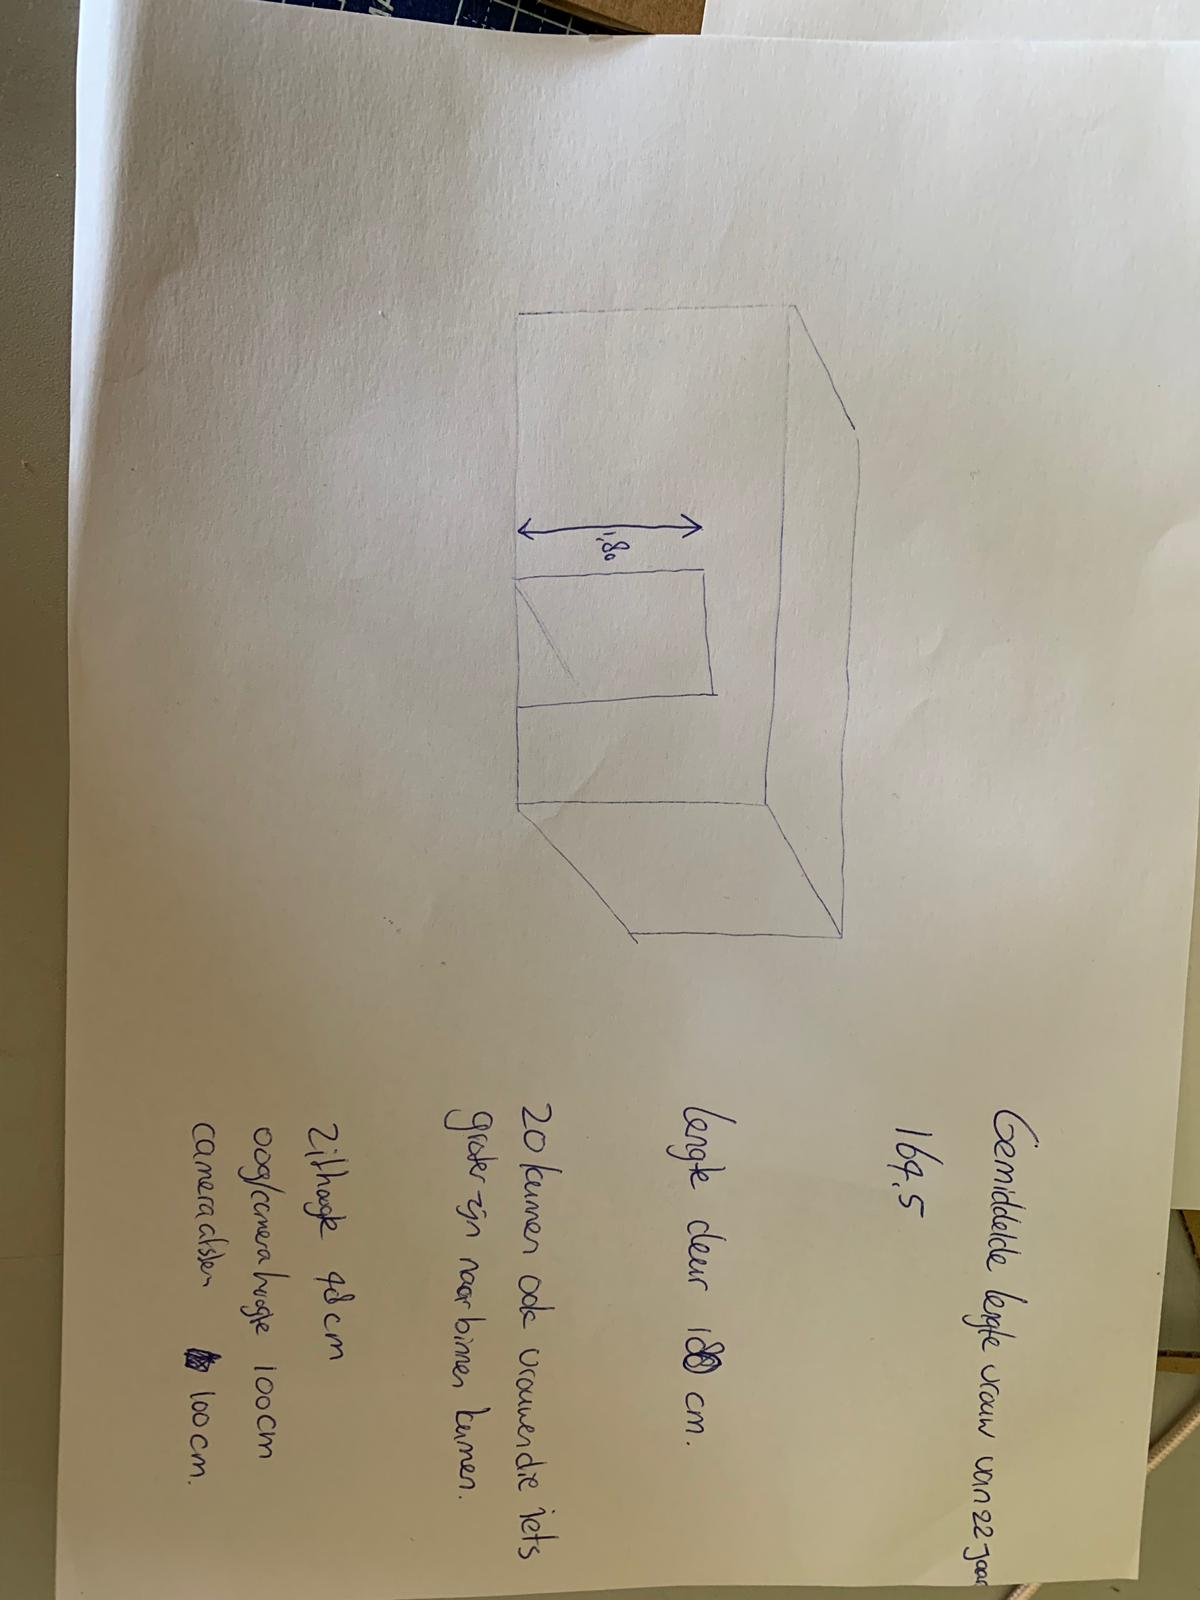 1,80
Gemiddelde lengte vrouw van 22 jaar
164,5
lengte deur 180 cm.
Zo kunnen ook vrouwen die iets
groter zijn naar binnen kunnen.
Zithoogte 48 cm
oog/camera hoogte 100 cm
camera afstan 100 cm.